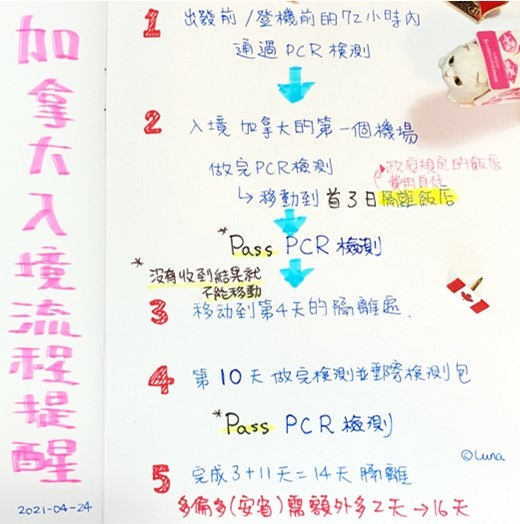 加拿大入境流程提醒
2021-04-24
1 出發前/登機前的72小時內
通過PCR檢測
2 入境 加拿大的第一個機場
做完PCR檢測
政府規定的飯店
費用自付
↳ 移動到 首3日隔離飯店
*Pass PCR檢測
*沒有收到結果就
不能移動
3 移动到第4天的隔離處.
4 第10天做完檢測並郵寄檢測包
*Pass PCR檢測
©Luna
5 完成3+11天=14天 隔離
多倫多(安省)需額外多2天→16天